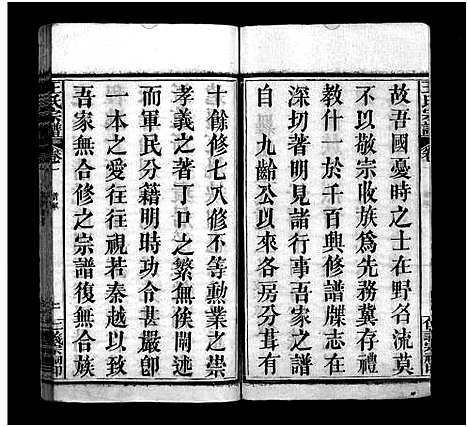 故吾國憂時之士在野名流莫
不以敬宗收族為先務冀存禮
教什一於千百與修譜牒志在
深切著明見諸行事吾家之譜
自 九齡公以來各房分茸有
十餘修七八修不等勳業之崇
孝義之著丁口之繁無俟闡述
而軍民分籍明時功令甚嚴卽
一本之愛往往視若秦越以致
吾家無合修之宗譜復無合族
王氏宗譜
卷